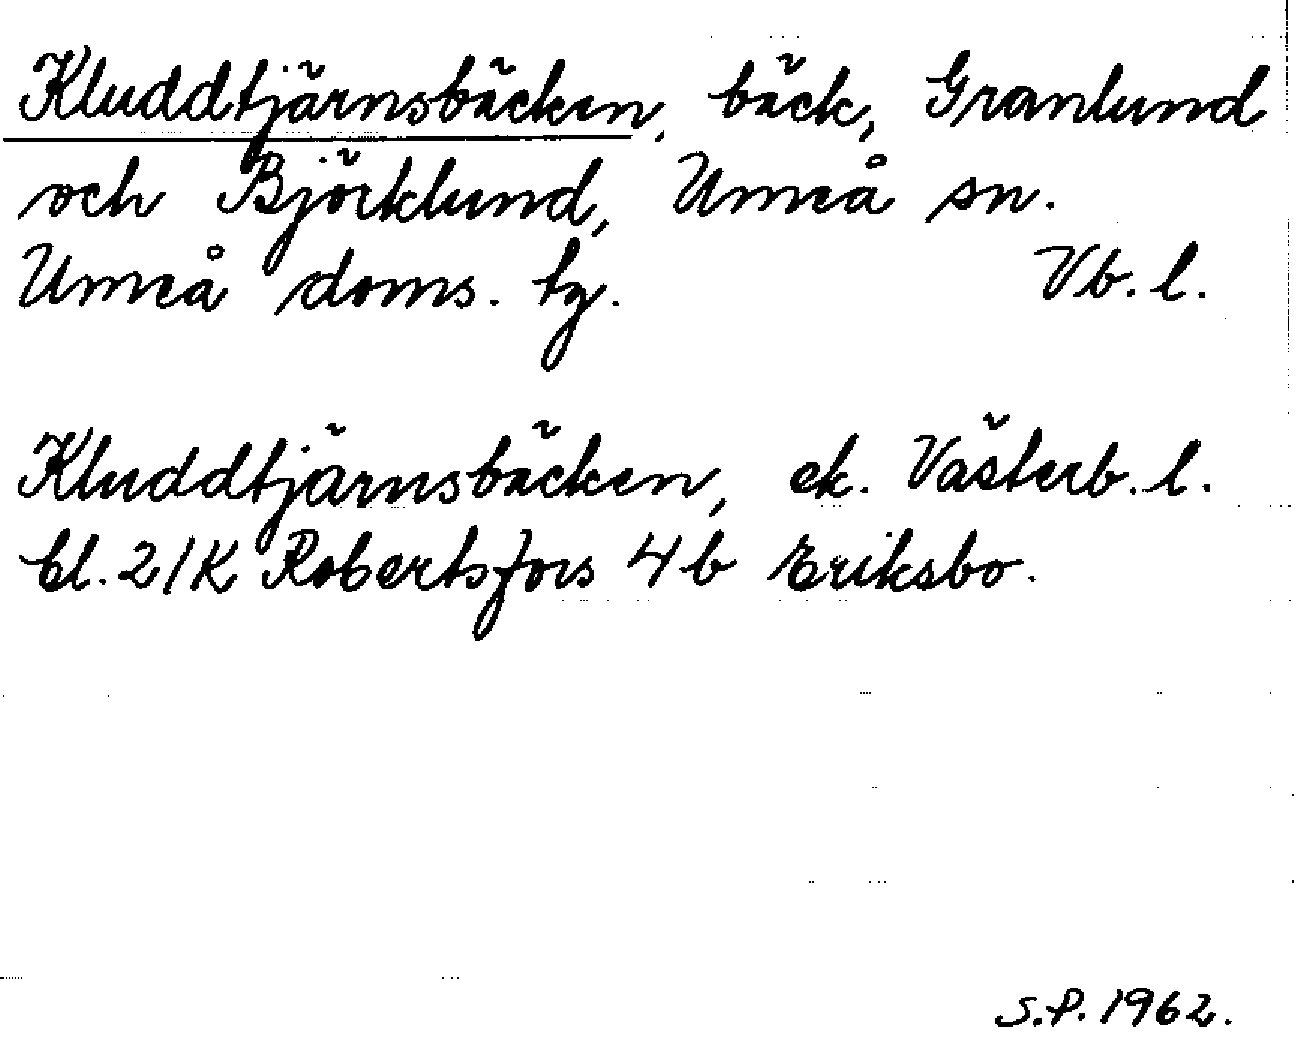 Kluddtjärnsbäcken, bäck, Granlund
och Björklund, Umeå sn.
Umeå doms. tg. Vb. l.
Kluddtjärnsbäcken, ek. Västerb. l.
bl. 21K Robertsfors 4b Eriksbo.
S.P. 1962.